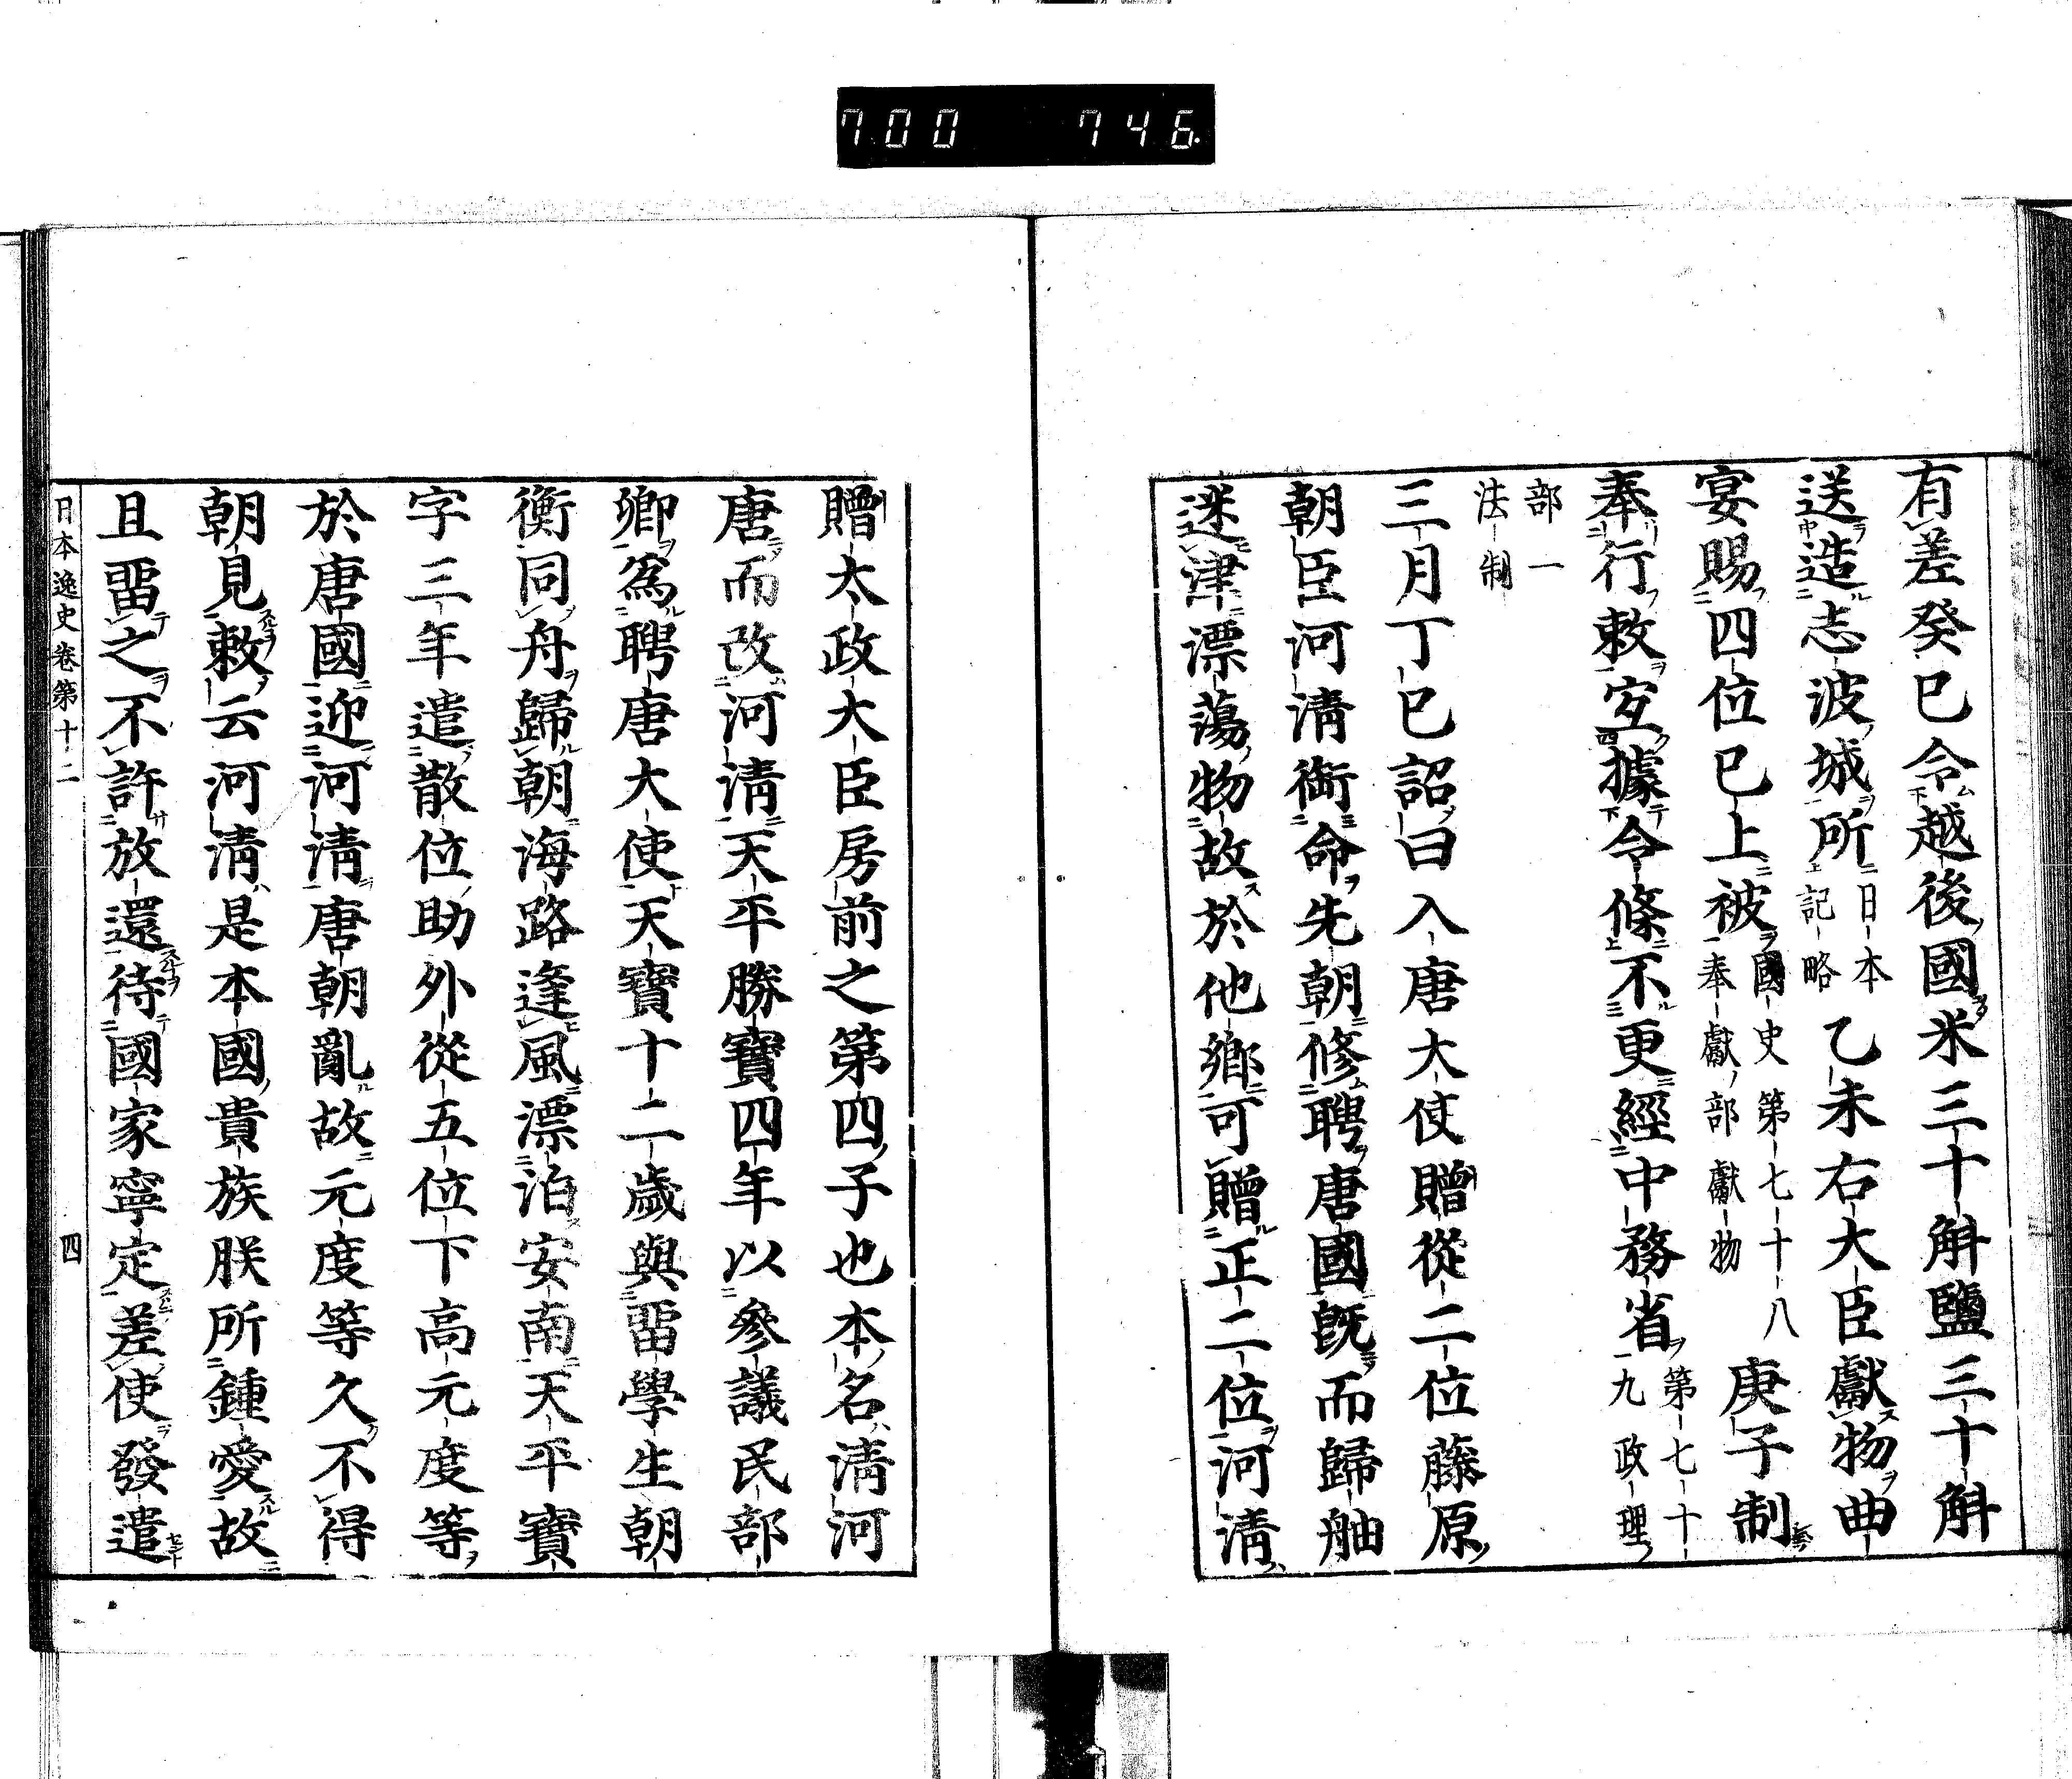 700 746
有差癸巳令越後國米三十斛鹽三十斛
送造志波城所日本記略乙未右大臣獻物曲
宴賜四位已上被國史第七十八奉獻部獻物庚子制
奉行敕宣據令條不更經中務省第七十九政理
部一法制
三月丁巳詔曰入唐大使贈從二位藤原
朝臣河清銜命先朝修聘唐國旣而歸舳
迷津漂蕩物故於他鄉可贈正二位河清
贈太政大臣房前之第四子也本名清河
唐而改河清天平勝寶四年以參議民部
卿爲聘唐大使天寶十二歲與留學生朝
衡同舟歸朝海路逢風漂泊安南天平寶
字三年遣散位助外從五位下高元度等
於唐國迎河清唐朝亂故元度等久不得
朝見敕云河清是本國貴族朕所鍾愛故
且留之不許放還待國家寧定差使發遣
日本逸史卷第十二 四